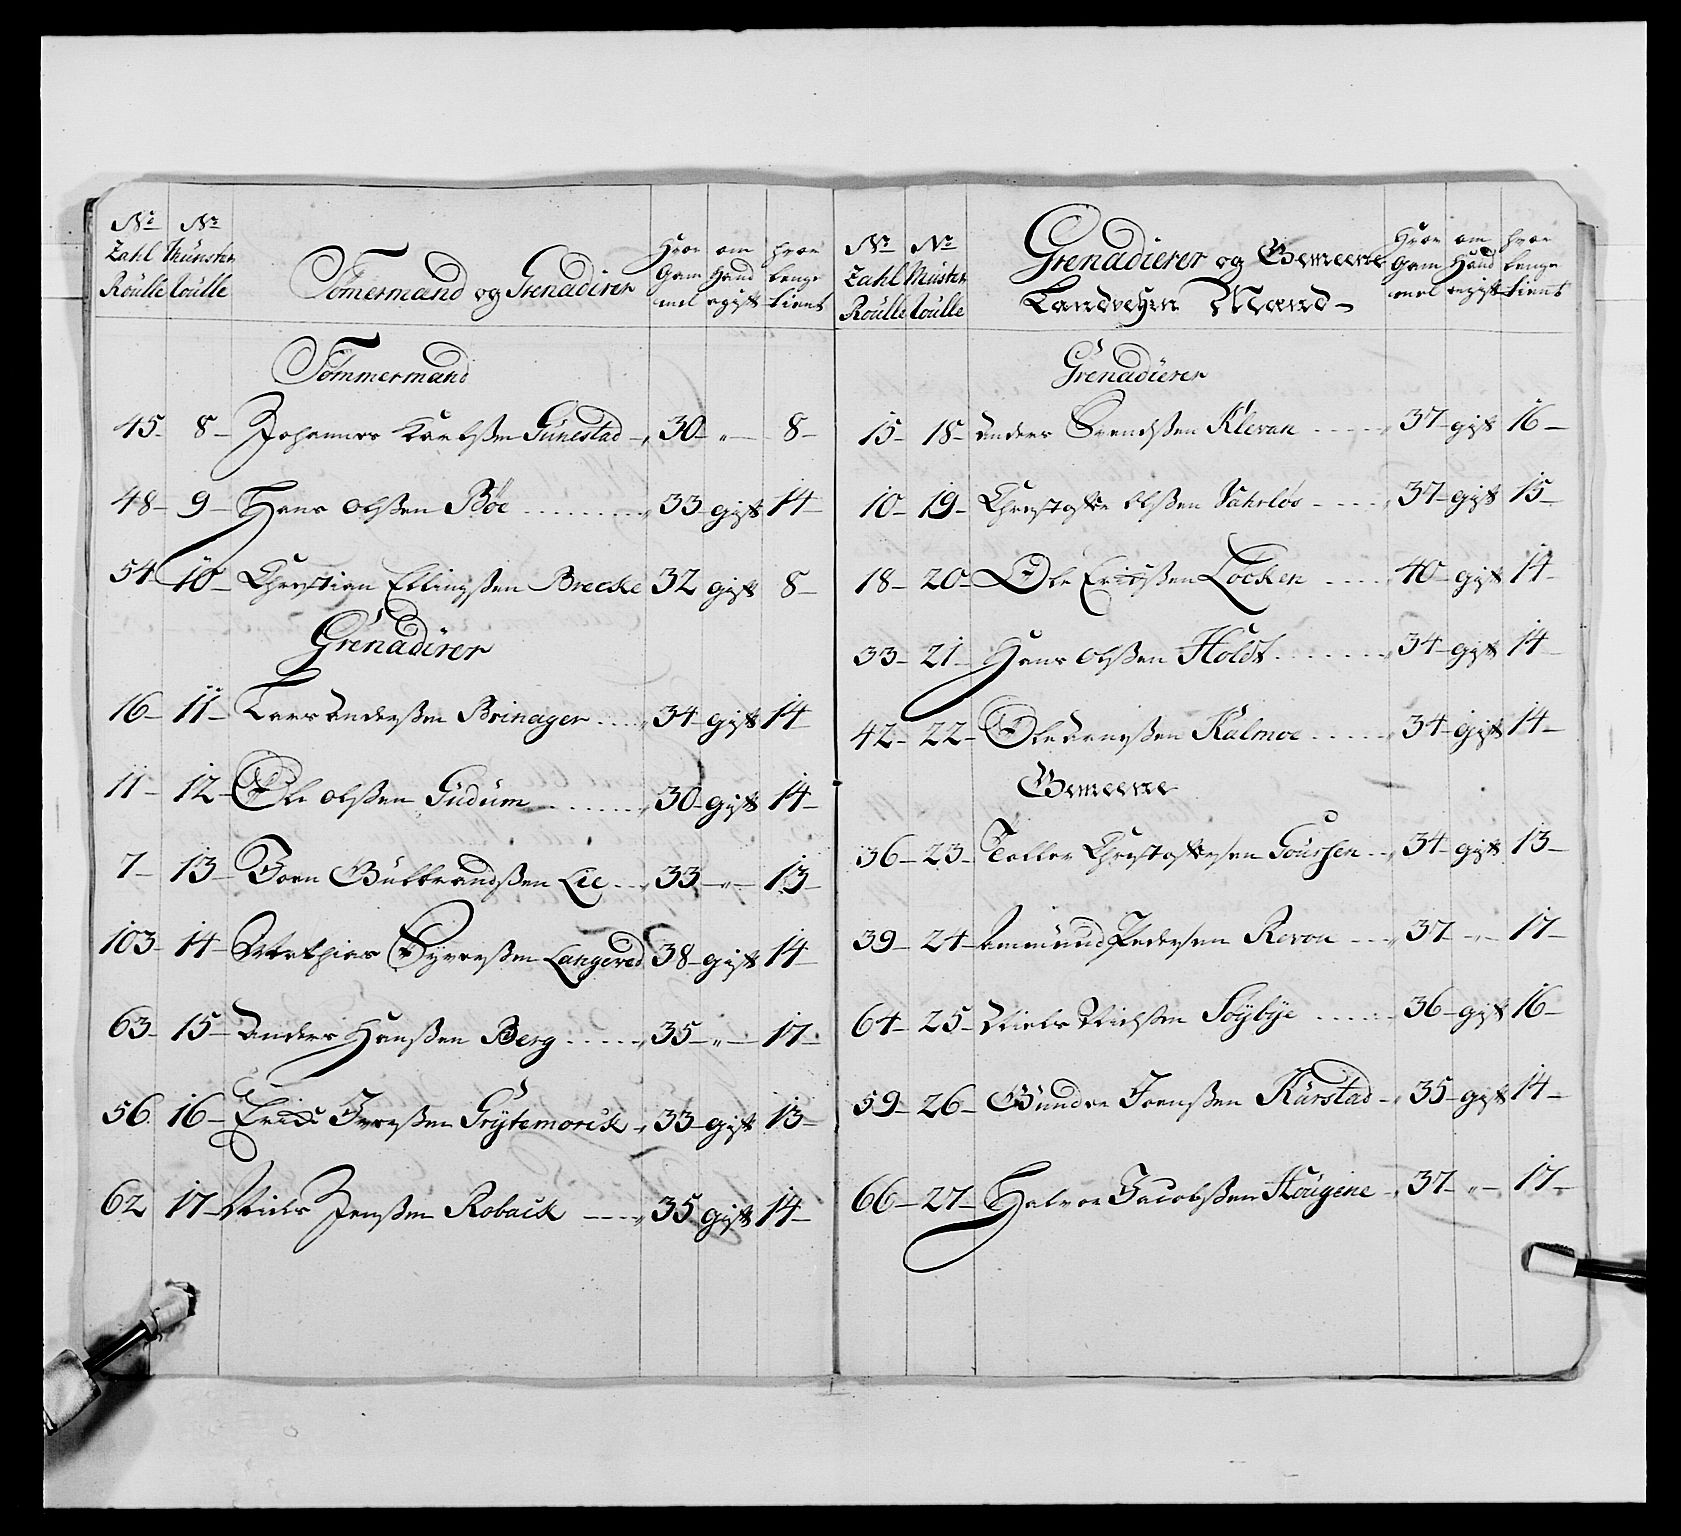 No Zahl Roulle No Münster Roulle Tömermand og Grenadirer Hvor Gam mel om Hand er gift hvor lenge tient
Tömmermand
45 - 8 - Johannes Karelsßen Gunestad - 30 - " - 8 -
48 - 9 - Hans Olsßen Böe - 33 - gift 14 -
54 - 10 - Christian Ellingsßen Brecke 32 gift 8 -
Grenadirer
16 - 11 - Lars Andersßen Brinager - 34 - gift 14 -
11 - 12 - Ole Olsßen Gudum - 30 - gift 14 -
7 - 13 - Joen Gulbrandsßen Lie - 33 - " - 13 -
103 - 14 - Mathias Syversßen Langerud 38 - gift 14 -
63 - 15 - Anders Hansßen Berg - 35 - " - 17 -
56 - 16 - Erick Iversßen Grÿtemorck - 33 - gift 13 -
62 17 - Niels Jensßen Roback - 35 gift 14 -
No Zahl Roulle No Münster Roulle Grenadierer og Gemeene Landvern Mænd - Hvor Gam mel om Hand er gift hvor lenge tient
Grenadierer
15 - 18 - Anders Svendsßen Klevan - 37 - gift 16 -
10 - 19 - Christopher Olsßen - 37 - gift 15 -
18 - 20 - Ole Ericksßen Löcken - 40 - gift 14 -
33 - 21 - Hans Olsßen Holdt - 34 - gift 14 -
42 - 22 - Ole Arnesßen Kalmoe - 34 - gift 14 -
Gemeene
36 - 23 - Tollev Christophersen - 34 - gift 13 -
39 - 24 - Amund Pedersen Revou - 37 - " - 17 -
64 - 25 - Niels Nielsßen Söÿbÿe - 36 - gift 16 -
59 - 26 - Gunder Joensßen Karstad - 35 - gift 14 -
66 - 27 - Halvor Jacobsßen Hougene - 37 - " - 17 -